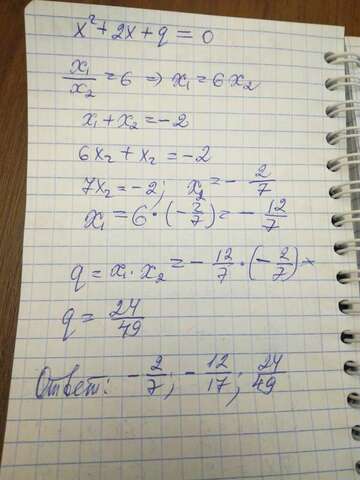 x² + 2x + q = 0
x₁/x₂ = 6 ⇒ x₁ = 6x₂
x₁ + x₂ = -2
6x₂ + x₂ = -2
7x₂ = -2; x₂ = - 2/7
x₁ = 6 · (- 2/7) = - 12/7
q = x₁ · x₂ = - 12/7 · (- 2/7) =
q = 24/49
Ответ: - 2/7; - 12/17; 24/49